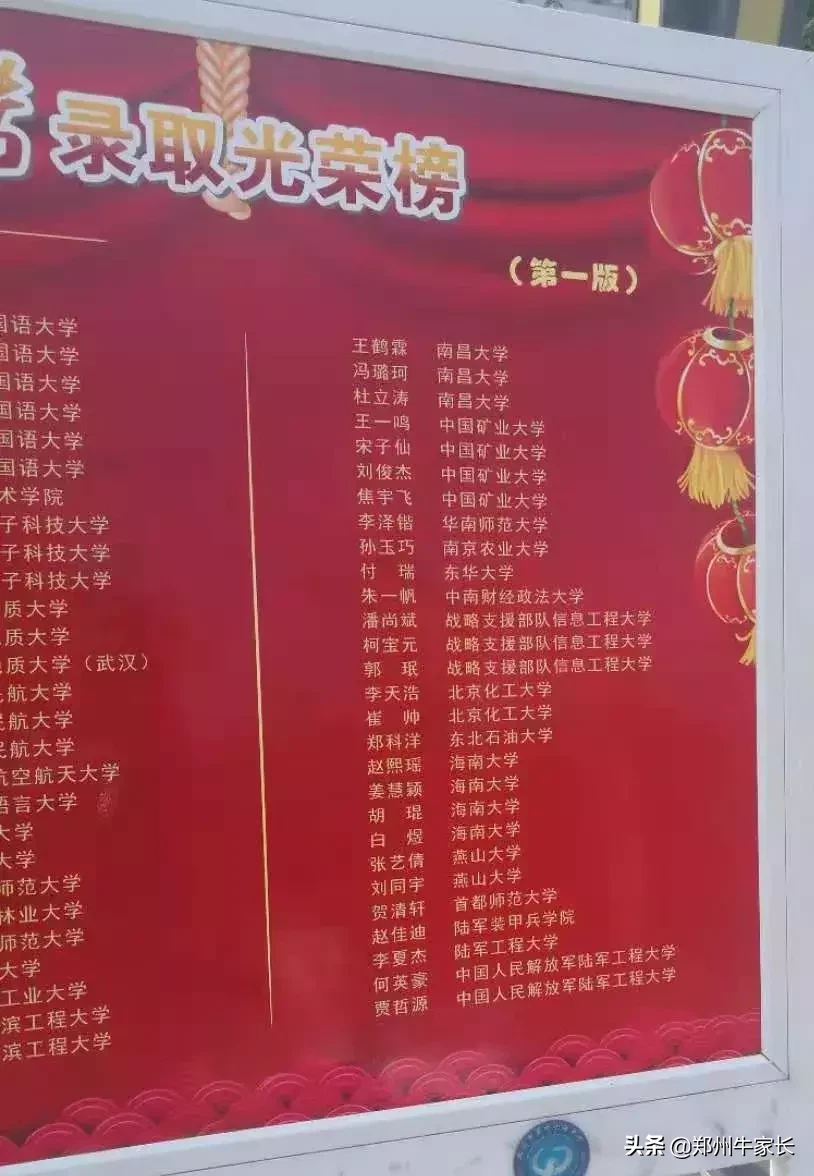 录取光荣榜
（第一版）
国语大学
国语大学
国语大学
国语大学
国语大学
国语大学
术学院
子科技大学
子科技大学
子科技大学
质大学
质大学
质大学（武汉）
航大学
民航大学
民航大学
航空航天大学
语言大学
大学
大学
师范大学
林业大学
师范大学
大学
工业大学
滨工程大学
滨工程大学
王鹤霖 南昌大学
冯璐珂 南昌大学
杜立涛 南昌大学
王一鸣 中国矿业大学
宋子仙 中国矿业大学
刘俊杰 中国矿业大学
焦宇飞 中国矿业大学
李泽锴 华南师范大学
孙玉巧 南京农业大学
付 瑞 东华大学
朱一帆 中南财经政法大学
潘尚斌 战略支援部队信息工程大学
柯宝元 战略支援部队信息工程大学
郭 珉 战略支援部队信息工程大学
李天浩 北京化工大学
崔 帅 北京化工大学
郑科洋 东北石油大学
赵熙瑶 海南大学
姜慧颖 海南大学
胡 琨 海南大学
白 煜 海南大学
张艺倩 燕山大学
刘同宇 燕山大学
贺清轩 首都师范大学
赵佳迪 陆军装甲兵学院
李夏杰 陆军工程大学
何英豪 中国人民解放军陆军工程大学
贾哲源 中国人民解放军陆军工程大学
头条 @郑州牛家长